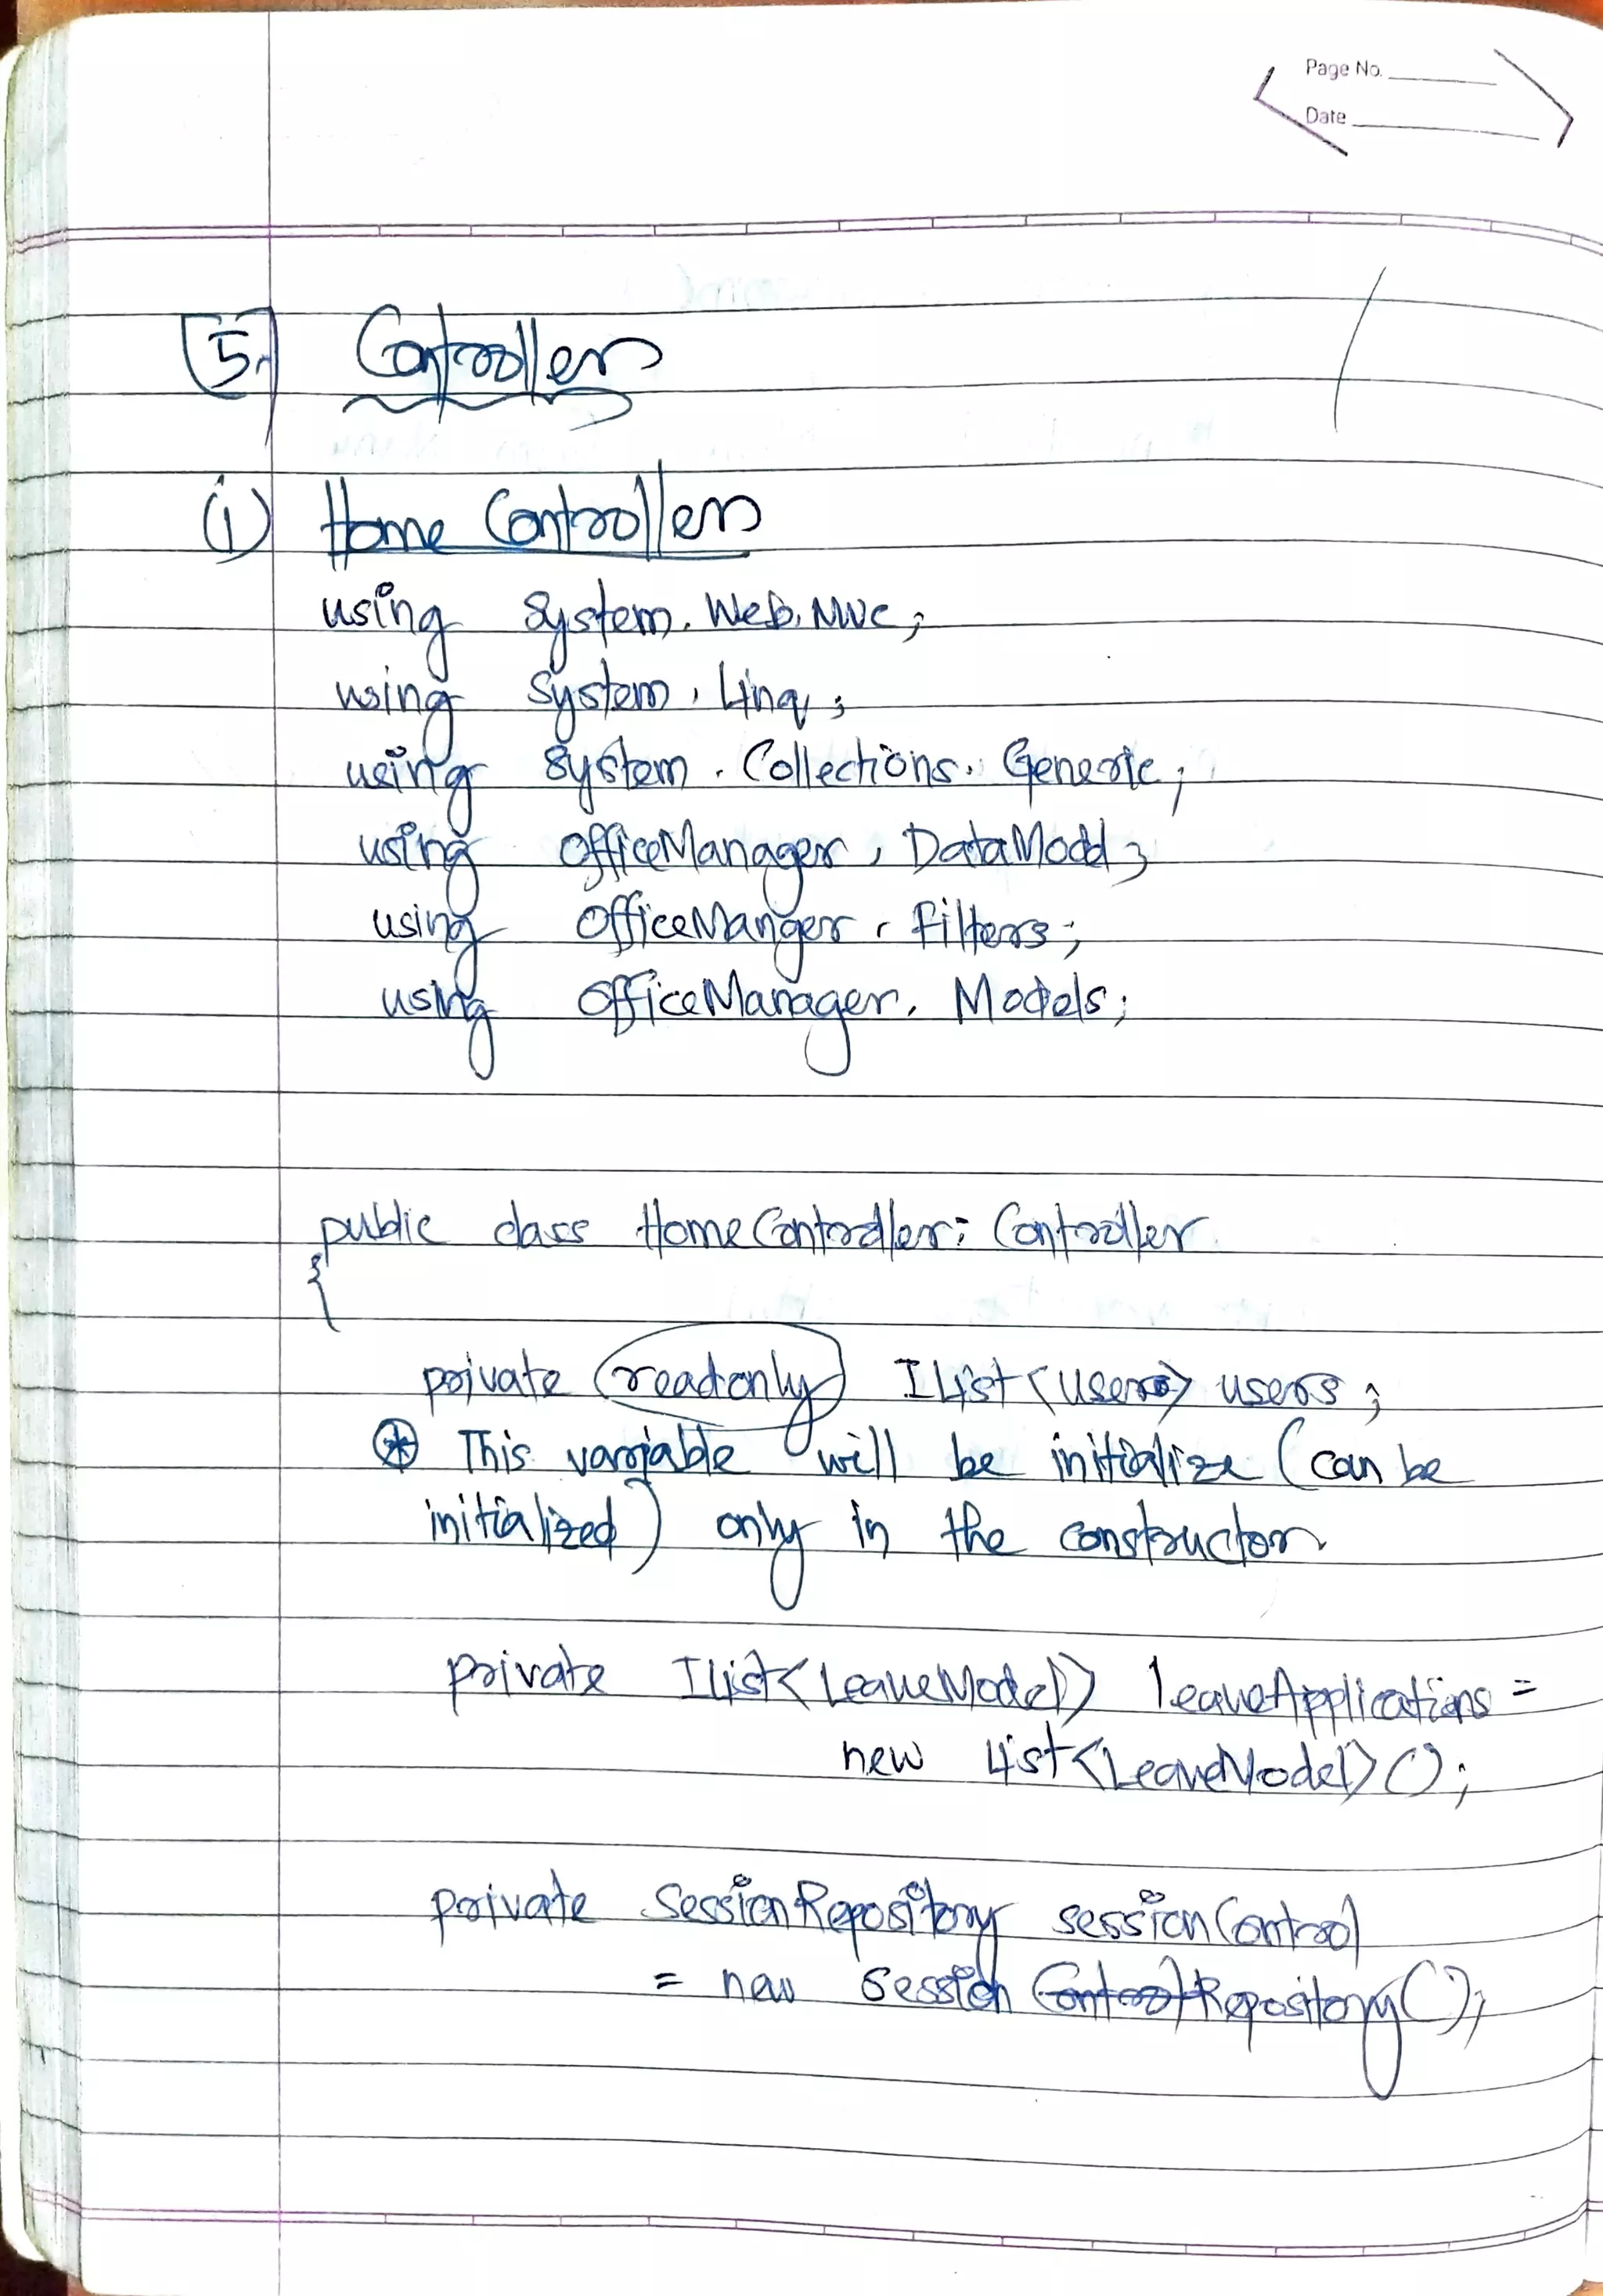 Page No.
Date
5. Controller
(i) Home Controller
using System.Web.Mvc;
using System.Linq;
using System.Collections.Generic;
using OfficeManager.DataModel;
using OfficeManger.Filters;
using OfficeManager.Models;
public class HomeController : Controller
{
private readonly IList<User> users;
* This variable will be initialize (can be
initialized) only in the constructor
private IList<LeaveModel> leaveApplications =
new List<LeaveModel>();
private SessionRepository sessionControl
= new Session Control Repository();